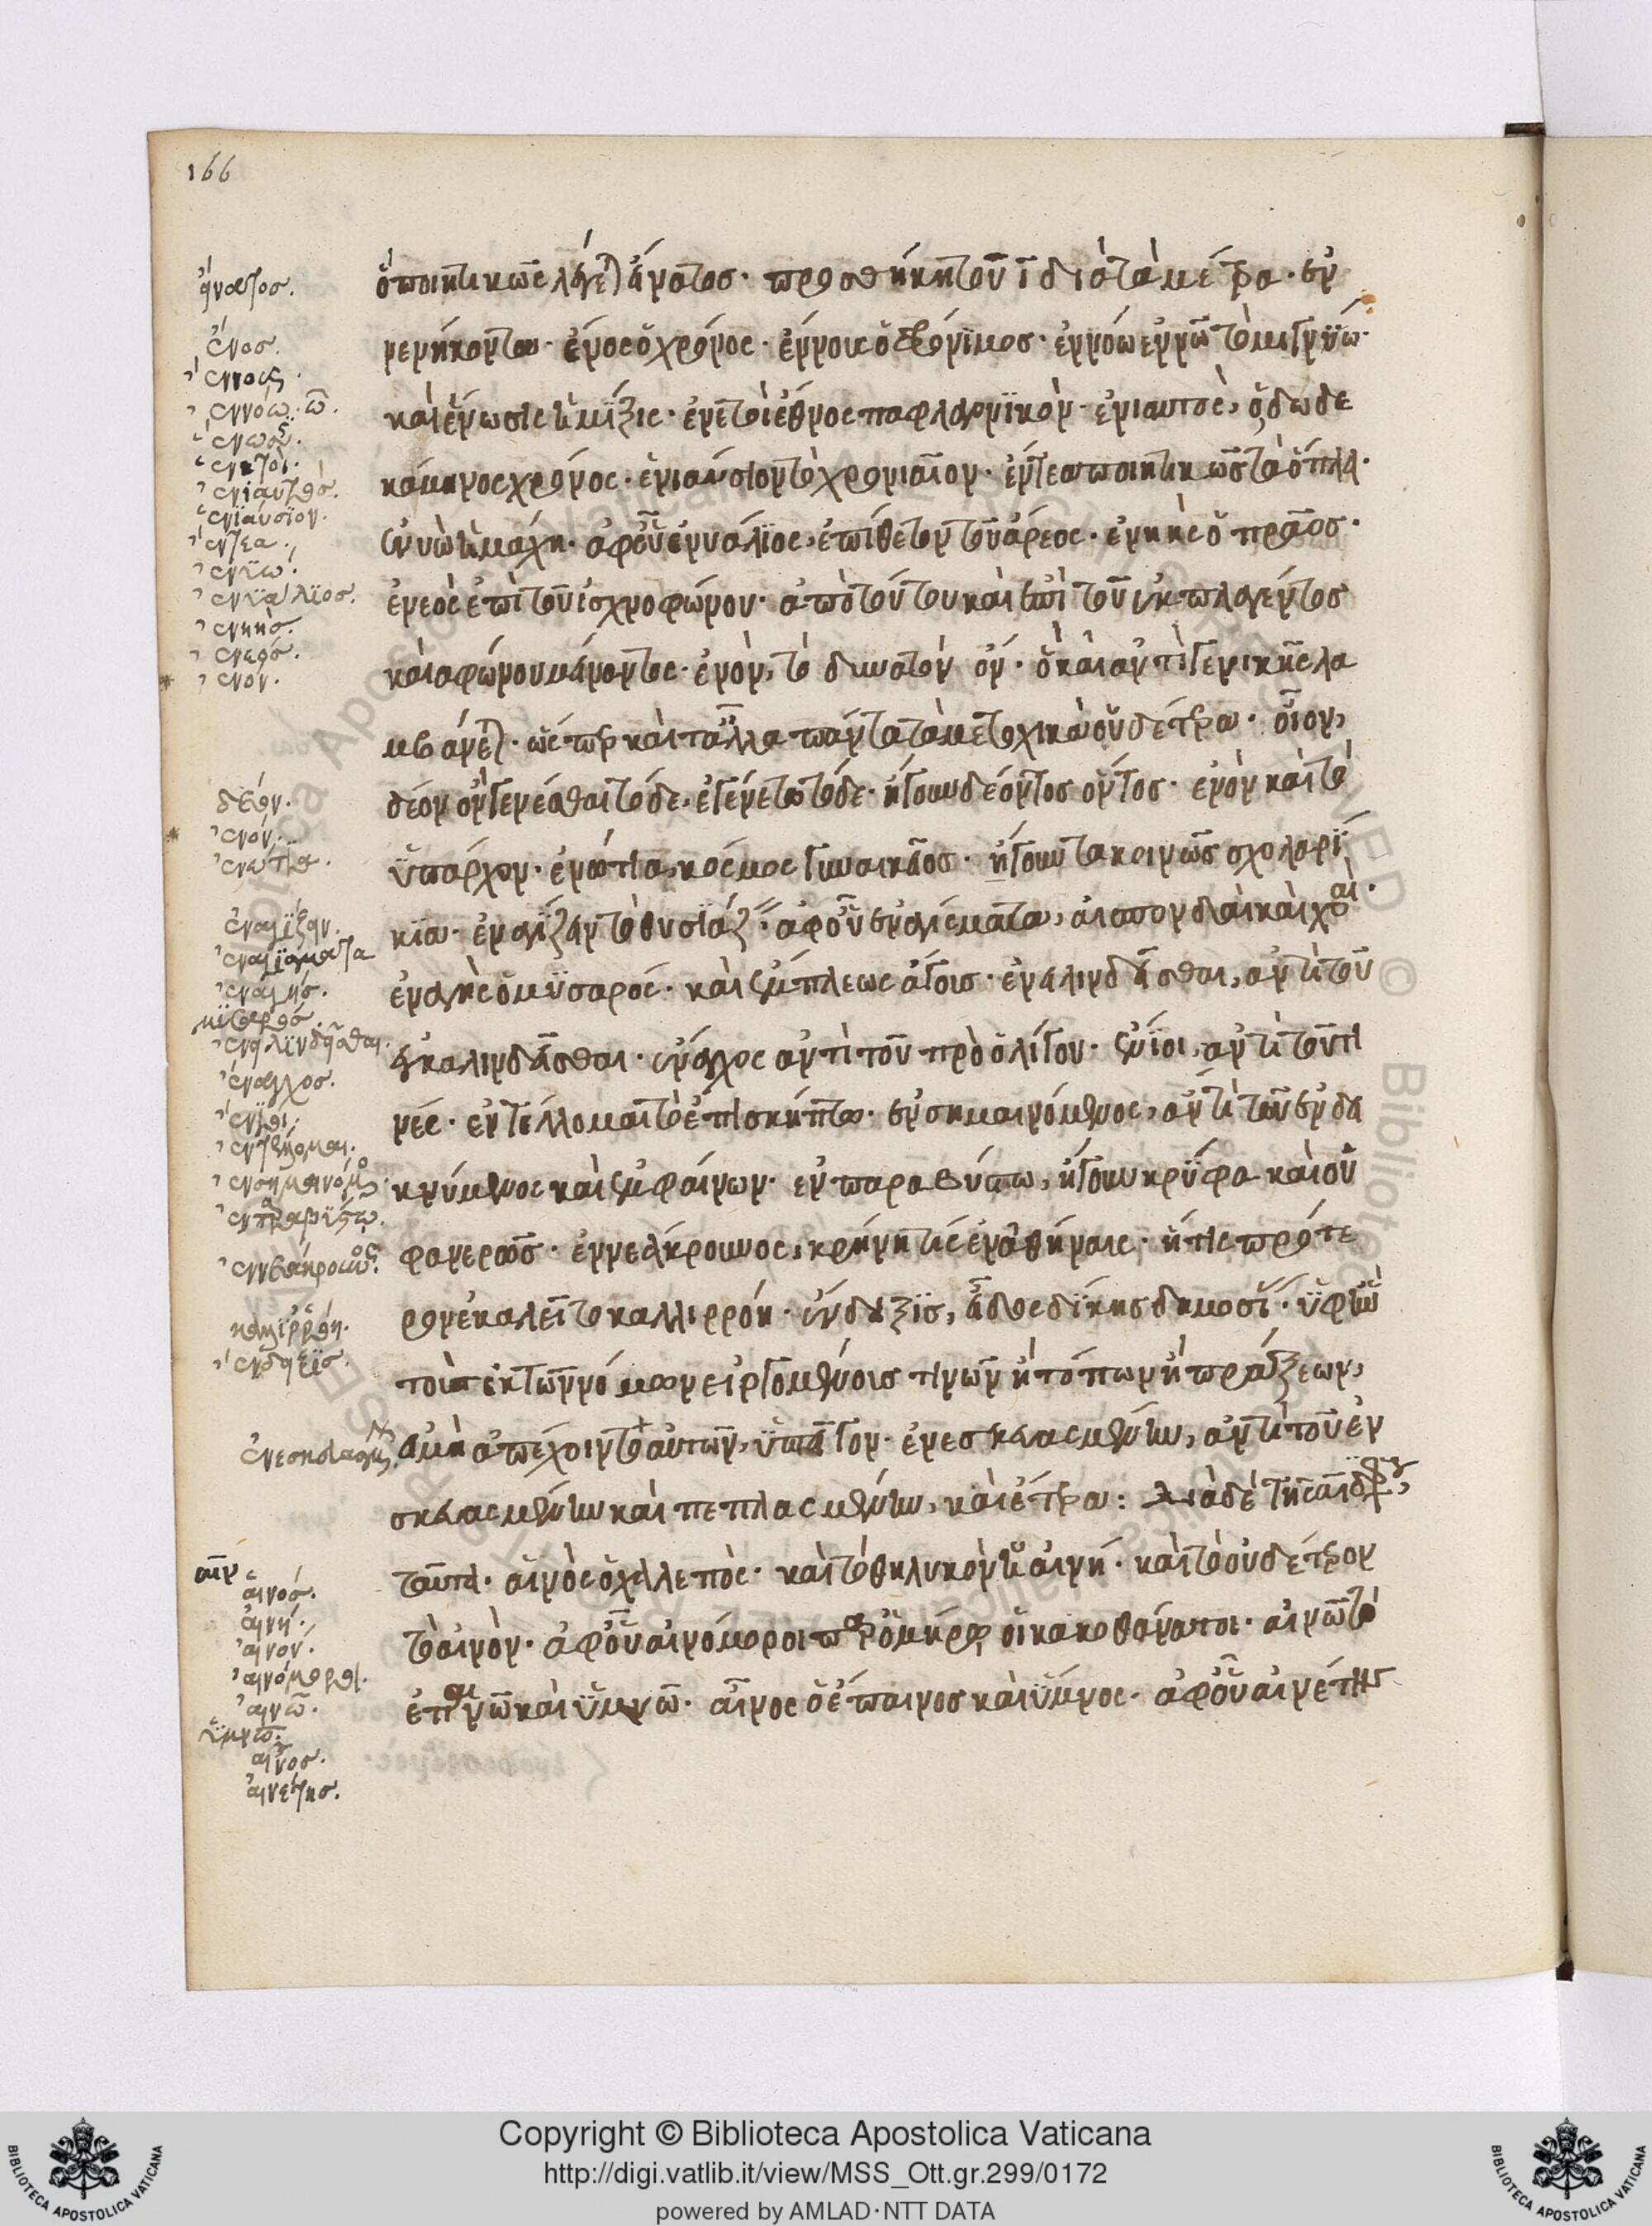 166
ὃ ποιητικῶς λέγεται εἴνατος· προσθήκη τοῦ ῑ διὰ τὰ μέτρα· ἐν
νενήκοντα· ἔνος ὁ χρόνος· ἔννους ὁ φρόνιμος· ἐννόω ἐννῶ τὸ μιγνύω·
καὶ ἕνωσις ἡ μῖξις· ἐνετοὶ ἔθνος παφλαγονικόν· ἐνιαυτὸς, ὁ δωδε
κάμηνος χρόνος· ἐνιαύσιον τὸ χρονιαῖον· ἔντεα ποιητικῶς τὰ ὅπλα·
ἐνυὼ ἡ μάχη· ἀφ' οὗ ἐνυάλιος, ἐπίθετον τοῦ ἄρεος· ἐνηὴς ὁ πρᾶος·
ἐνεὸς ἐπὶ τοῦ ἰσχνοφώνου· ἀπὸ τούτου καὶ ἐπὶ τοῦ ἐκπλαγέντος
καὶ αφώνου μένοντος· ἐνὸν, τὸ δυνατὸν ὄν· ὃ καὶ ἀντὶ γενικῆς λα
μβάνεται· ὥσπερ καὶ τἄλλα πάντα τὰ μετοχικὰ οὐδέτερα· οἷον,
δέον ὂν γενέσθαι τόδε, ἐγένετο τόδε· ἤγουν δέοντος ὄντος· ἐνὸν καὶ τὸ
ὕπαρχον· ἐνώτια, κόσμος γυναικεῖος· ἤγουν τα κοινῶς σχολαρί
κια· ἐναγίζειν τὸ θυσιάζειν· ἀφ' οὗ ἐναγίσματα, αἱ σπονδαὶ καὶ χοαί·
ἐναγὴς ὁ μυσαρός· καὶ ἔμπλεως ἄγους· ἐναλινδεῖσθαι, ἀντὶ τοῦ
ἐκαλινδεῖσθαι· ἔναγχος ἀντὶ τοῦ πρὸ ὀλίγου· ἔνιοι, ἀντὶ τοῦ τι
νές· ἐντέλλομαι τὸ ἐπισκήπτω· ἐνσημαινόμενος, ἀντὶ τοῦ ἐνδει
κνύμενος καὶ ἐμφαίνων· ἐν παραβύστω, ἤγουν κρύφα καὶ οὐ
φανερῶς· ἐννεάκρουνος, κρήνη τίς ἐν ἀθήναις· ἥτις πρότε
ρον ἐκαλεῖτο καλλιρρόη· ἔνδειξις, εἶδος δίκης δημοσίας· ὑφ' ἣν
τοὺς ἐκ τῶν νόμων εἰργομένους τινῶν ἢ τόπων ἢ πράξεων,
εἰ μὴ ἀπέχοιντο αὐτῶν, ὑπῆγον· ἐνεσκευασμένην, ἀντὶ τοῦ ἐν
σκευασμένην καὶ πεπλασμένην, καὶ ἕτερα: διὰ δὲ τῆς αι διφθόγγου,
ταῦτα· αἰνὸς ὁ χαλεπός· καὶ τὸ θηλυκὸν ἡ αἰνή· καὶ τὸ οὐδέτερον
τὸ αἰνόν· ἀφ' οὗ αἰνόμοροι παρ' ὁμήρῳ οἱ κακοθάνατοι· αἰνῶ τὸ
ἐπαινῶ καὶ ὑμνῶ· αἶνος ὁ ἔπαινος καὶ ὕμνος· ἀφ' οὗ αἰνέτης
εἴνατος.
ἔνος.
ἔννους.
ἐννόω. ῶ.
ἕνωσις.
ἐνετοί.
ἐνιαυτός.
ἐνιαύσιον.
ἔντεα.
ἐνυώ.
ἐνυάλιος.
ἐνηής.
ἐνεός.
ἐνόν.
δέον.
ἐνόν.
ἐνώτια.
ἐναγίζειν.
ἐναγίσματα
ἐναγής.
μυσαρός.
ἐναλινδεῖσθαι.
ἔναγχος.
ἔνιοι.
ἐντέλλομαι.
ἐνσημαινόμενος.
ἐν παραβύστω.
ἐννεάκρουνος.
καλλιρρόη.
ἔνδειξις.
ἐνεσκευασμένην.
αιν
αἰνός.
αἰνή.
αἰνόν.
αἰνόμοροι.
αἰνῶ.
ὑμνῶ.
αἶνος.
αἰνέτης.
Copyright © Biblioteca Apostolica Vaticana
http://digi.vatlib.it/view/MSS_Ott.gr.299/0172
powered by AMLAD·NTT DATA
BIBLIOTECA APOSTOLICA VATICANA
BIBLIOTECA APOSTOLICA VATICANA